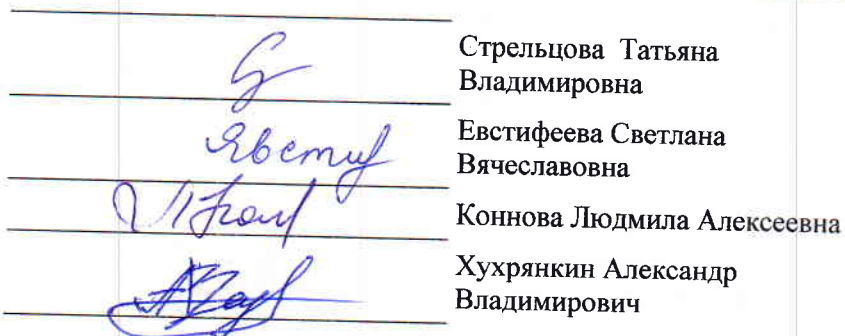 Стрельцова Татьяна
Владимировна
Евстифеева Светлана
Вячеславовна
Коннова Людмила Алексеевна
Хухрянкин Александр
Владимирович